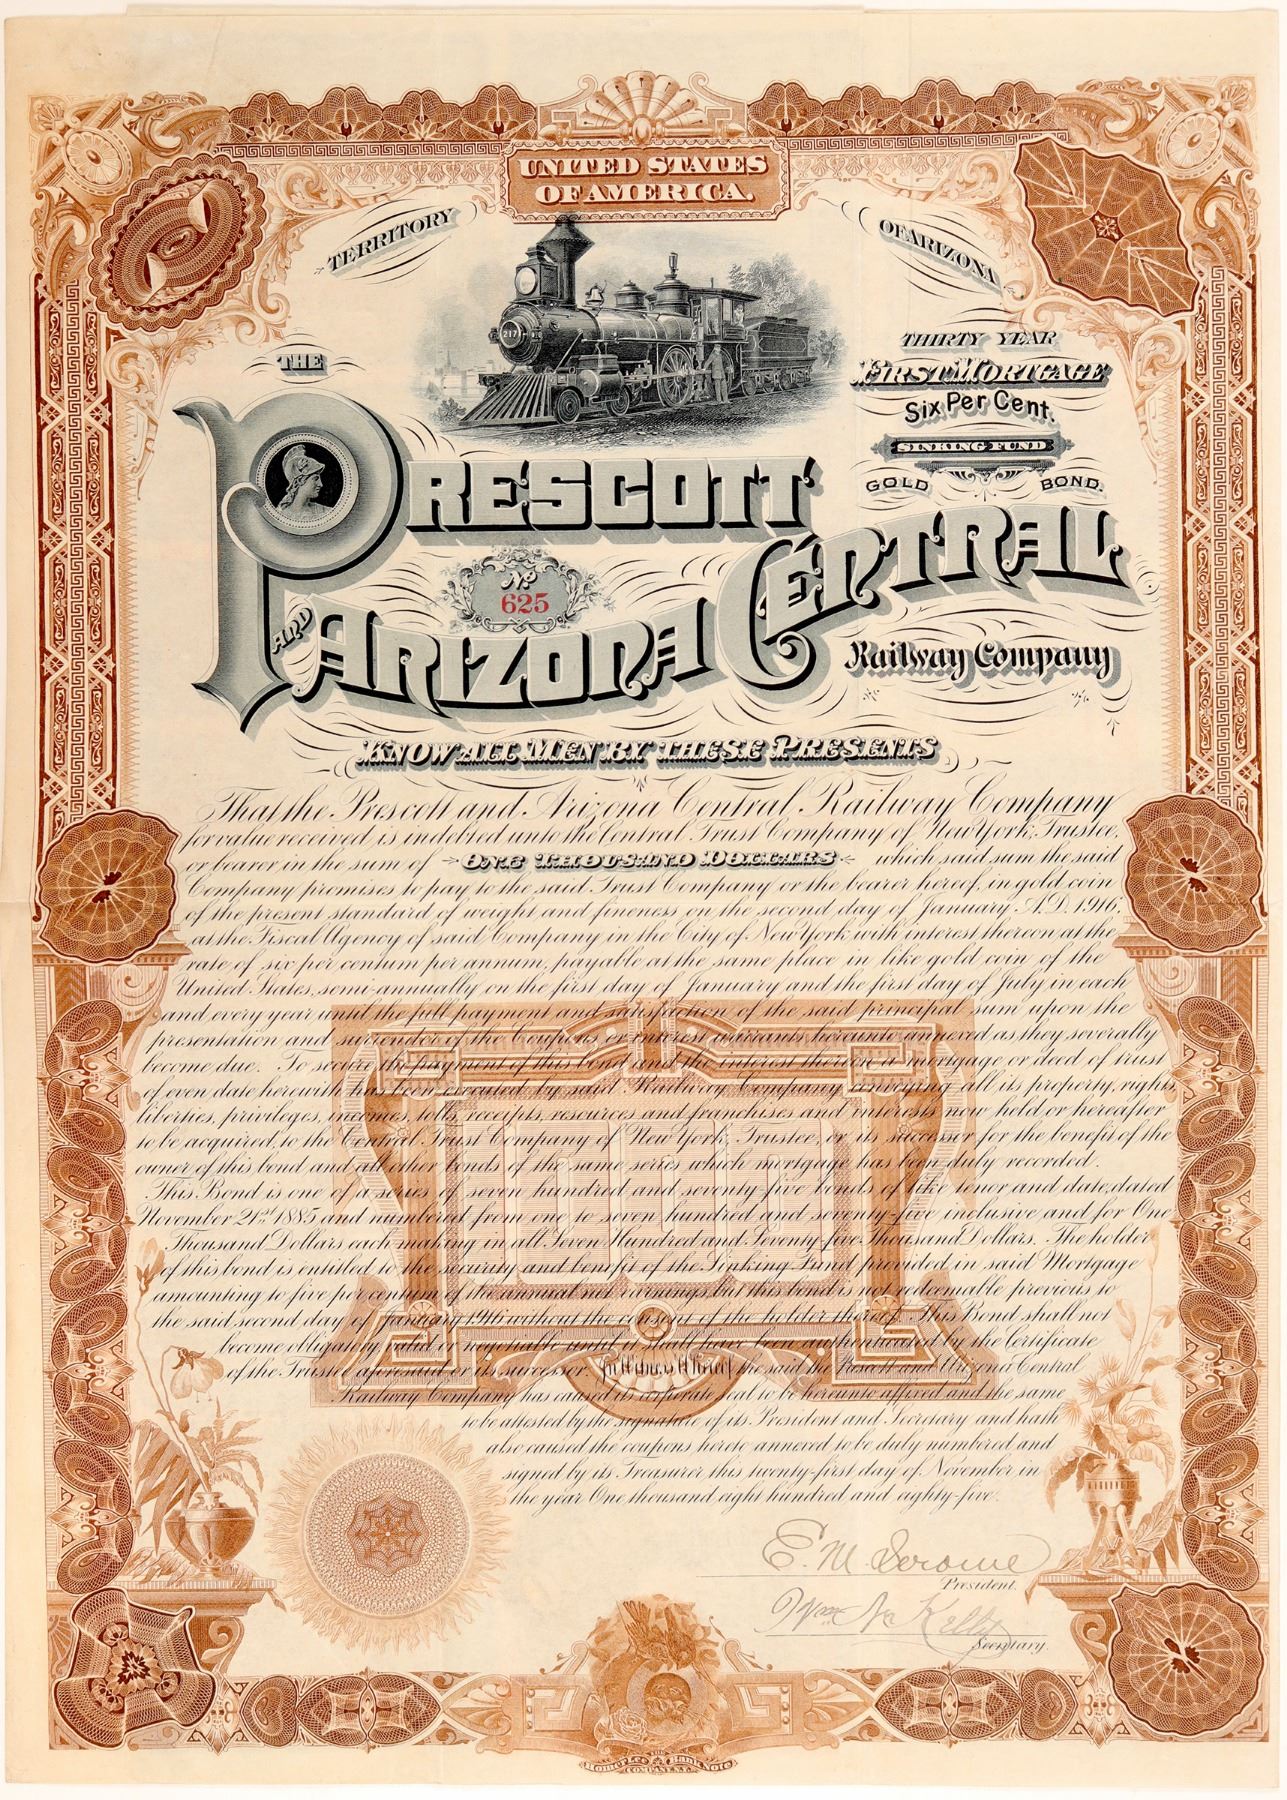 UNITED STATES
OF AMERICA.
TERRITORY OF ARIZONA
217
THIRTY YEAR
FIRST MORTGAGE
Six Per Cent.
SINKING FUND
GOLD BOND.
THE
PRESCOTT
AND ARIZONA CENTRAL
Railway Company
No
625
KNOW ALL MEN BY THESE PRESENTS
That the Prescott and Arizona Central Railway Company
for value received is indebted unto the Central Trust Company of New York, Trustee,
or bearer in the sum of ONE THOUSAND DOLLARS which said sum the said
Company promises to pay to the said Trust Company or the bearer hereof, in gold coin
of the present standard of weight and fineness on the second day of January A.D. 1916,
at the Fiscal Agency of said Company in the City of New York with interest thereon at the
rate of six per centum per annum, payable at the same place in like gold coin of the
United States, semi-annually on the first day of January and the first day of July in each
and every year until the full payment and satisfaction of the said principal sum upon the
presentation and surrender of the Coupons or interest warrants hereunto annexed as they severally
become due. To secure the payment of this bond and the interest thereon a mortgage or deed of trust
of even date herewith has been executed by said Railway Company conveying all its property, rights,
liberties, privileges, incomes, tolls, receipts, resources and franchises and interests now held or hereafter
to be acquired, to the Central Trust Company of New York, Trustee, or its successor for the benefit of the
owner of this bond and all other bonds of the same series which mortgage has been duly recorded.
This Bond is one of a series of seven hundred and seventy five bonds of like tenor and date, dated
November 21st 1885 and numbered from one to seven hundred and seventy-five inclusive and for One
Thousand Dollars each making in all Seven Hundred and Seventy five Thousand Dollars. The holder
of this bond is entitled to the security and benefit of the Sinking Fund provided in said Mortgage
amounting to five per centum of the annual net earnings, but this bond is not redeemable previous to
the said second day of January 1916 without the consent of the holder thereof. This Bond shall not
become obligatory, valid or negotiable until it shall have been authenticated by the Certificate
of the Trustee aforesaid or its successor. In Witness Whereof the said the Prescott and Arizona Central
Railway Company has caused its corporate seal to be hereunto affixed and the same
to be attested by the signature of its President and Secretary and hath
also caused the coupons hereto annexed to be duly numbered and
signed by its Treasurer this twenty-first day of November in
the year One thousand eight hundred and eighty-five.
1000
E. M. Jerome
President.
Wm A Kelly
Secretary.
THE
HOMER LEE BANK NOTE
COMPANY N.Y.